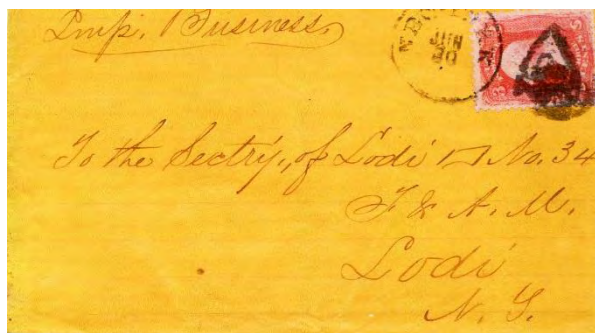 Imp. Business
JUN
30
To the Sectriy., of Lodi ▭ No. 34
F & A. M.
Lodi
N. Y.